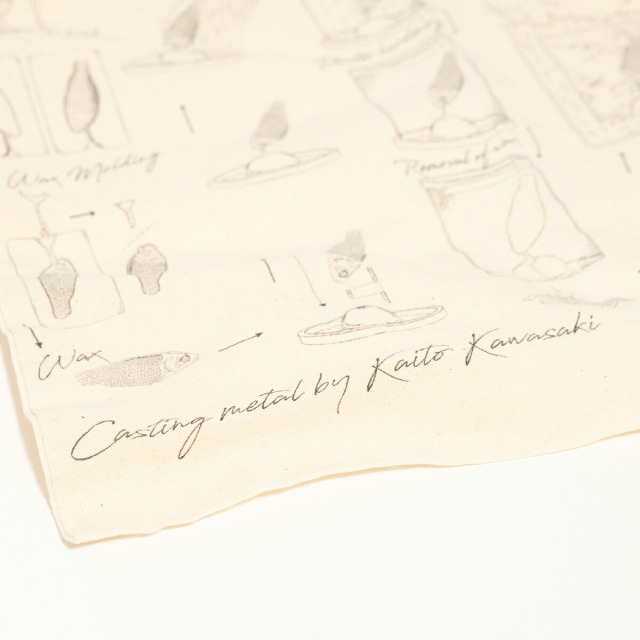 Wax Molding
Removal of
Wax
Casting metal by Kaito Kawasaki